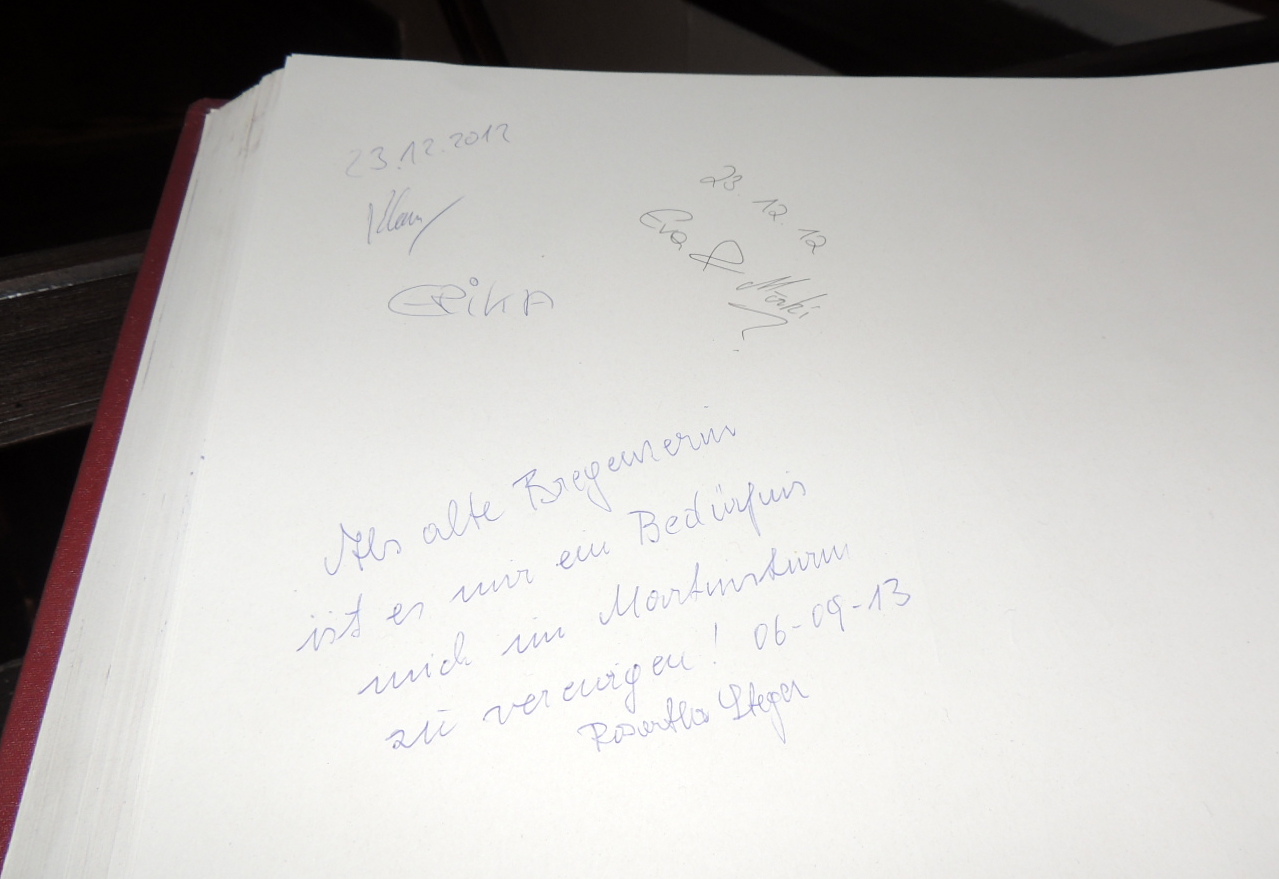 23.12.2012
Klaus
ERiKA
23. 12. 12
Eva &
Als alte Bregenzerin
ist es mir ein Bedürfnis
mich im Martinsturm
zu verewigen! 06-09-13
Steger